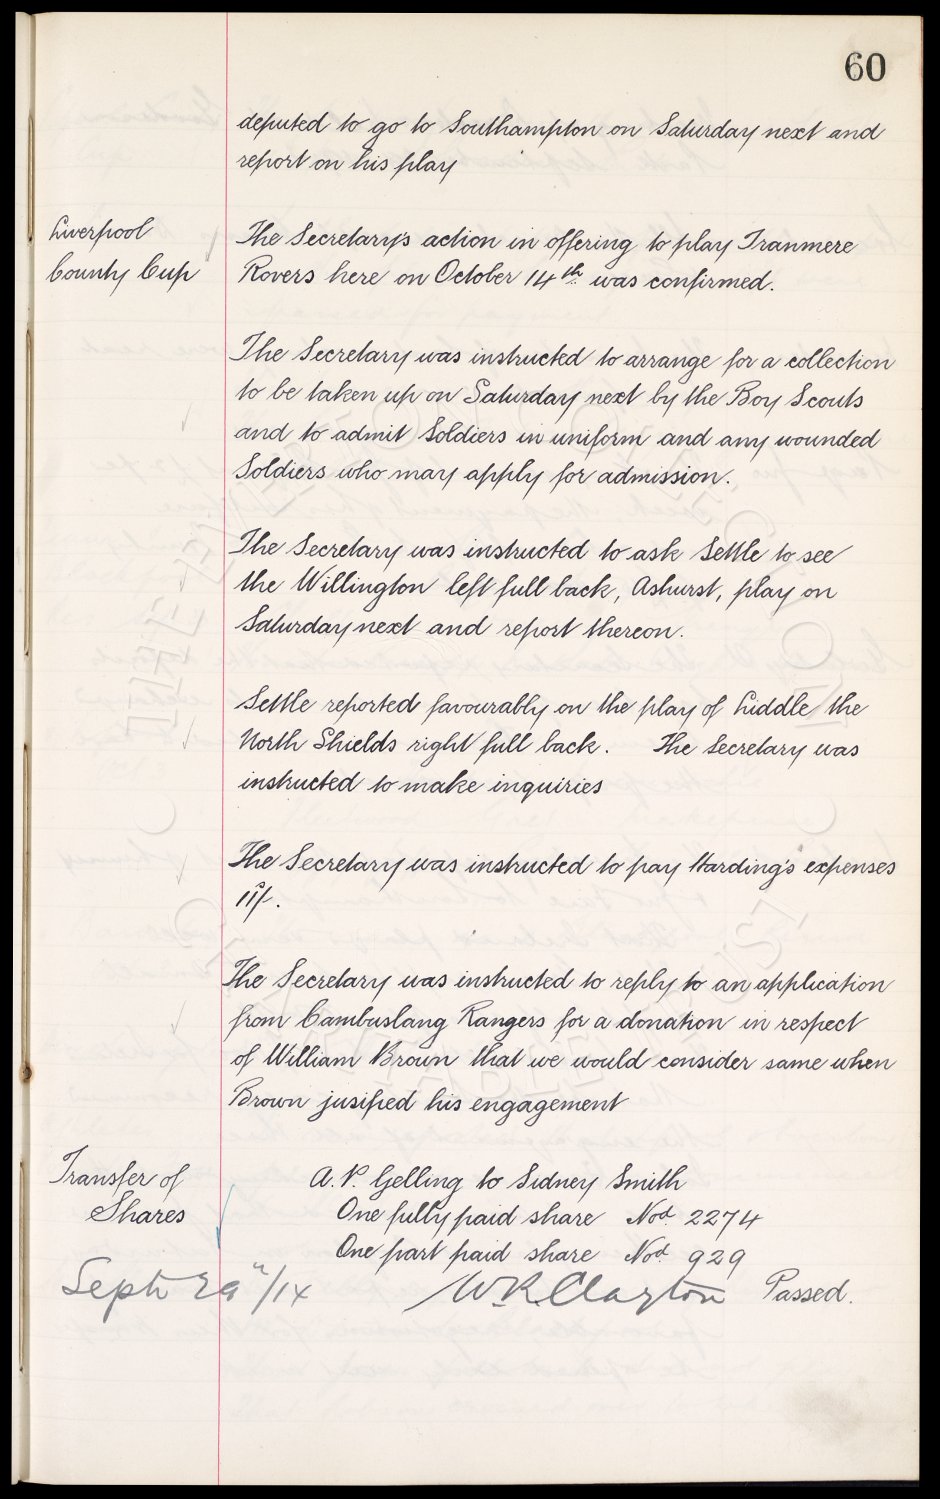 60
deputed to go to Southampton on Saturday next and
report on his play
Liverpool
County Cup
The Secretary's action in offering to play Tranmere
Rovers here on October 14th was confirmed.
The Secretary was instructed to arrange for a collection
to be taken up on Saturday next by the Boy Scouts
and to admit Soldiers in uniform and any wounded
Soldiers who may apply for admission.
The Secretary was instructed to ask Settle to see
the Willington left full back, Ashurst, play on
Saturday next and report thereon.
Settle reported favourably on the play of Liddle the
North Shields right full back. The Secretary was
instructed to make inquiries
The Secretary was instructed to pay Harding's expenses
11/-.
The Secretary was instructed to reply to an application
from Cambuslang Rangers for a donation in respect
of William Brown that we would consider same when
Brown jusified his engagement
Transfer of
Shares
A. P. Gelling to Sidney Smith
One fully paid share Nod. 2274
One part paid share Nod. 929
Passed.
Sept 29"/14
W.R. Clayton